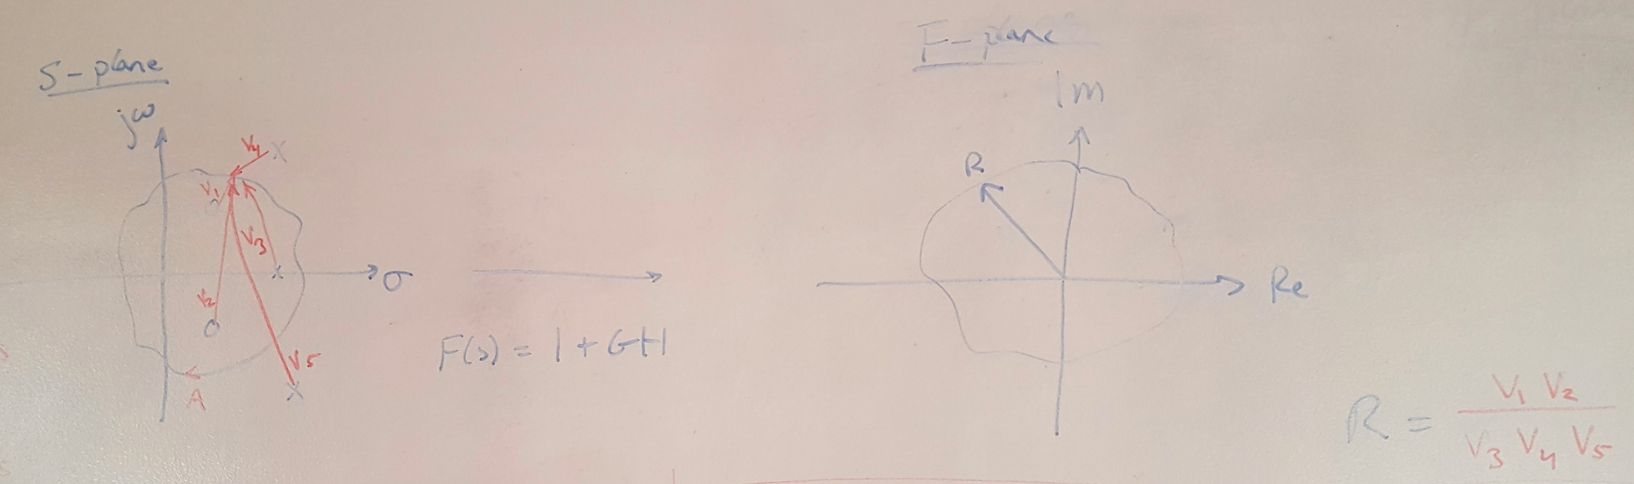 S-plane
jω
V4
X
V1
O
V3
x
σ
V2
O
V5
X
A
F(s) = 1 + GH
F-plane
Im
R
Re
R = V1 V2 / V3 V4 V5